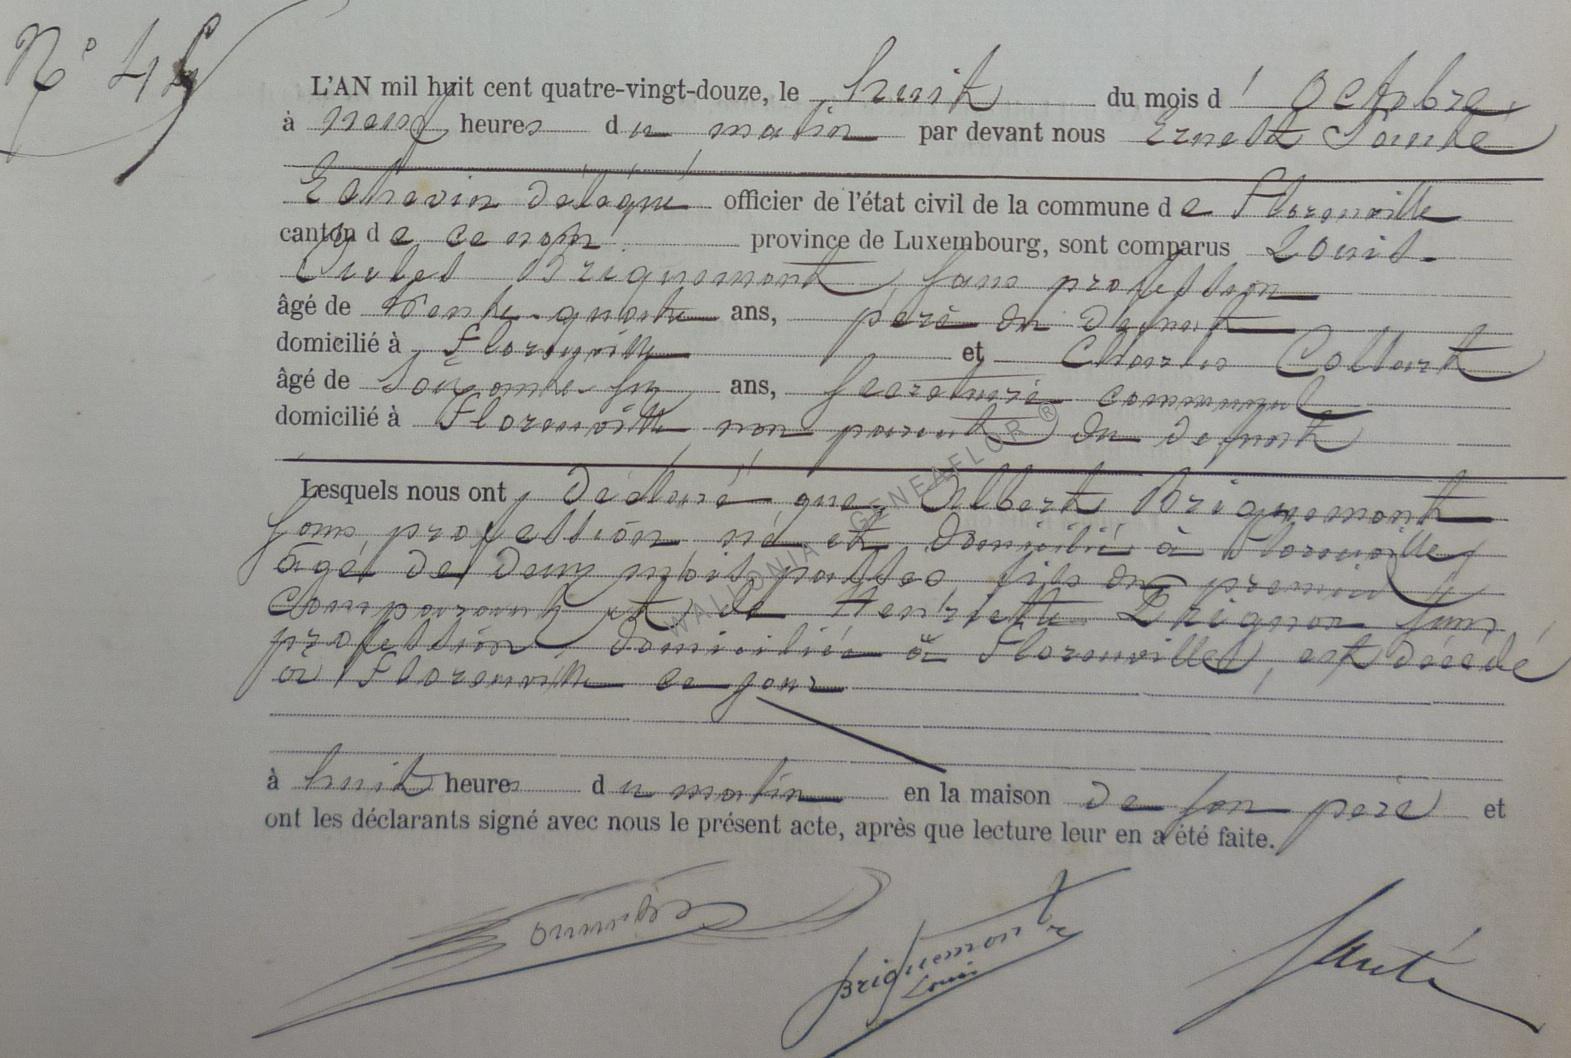 N° 45
L'AN mil huit cent quatre-vingt-douze, le huit du mois d'octobre
à neuf heures du matin par devant nous Ernest Santé
Echevin délégué officier de l'état civil de la commune de Florenville
canton de ce nom province de Luxembourg, sont comparus Louis-
Briquemont, sans profession
âgé de trente-quatre ans, père du defunt
domicilié à Florenville et Charles Collart
âgé de Soixante-six ans, secrétaire communal
domicilié à Florenville non parent du defunt
Lesquels nous ont déclaré que Albert Briquemont
sans profession né et domicilié à Florenville
âgé de deux mois passés fils du premier
Comparant et de Henriette sans
profession domiciliée à Florenville, est décédé
à Florenville ce jour
à huit heures du matin en la maison de son père et
ont les déclarants signé avec nous le présent acte, après que lecture leur en a été faite.
Briquemont
Louis
Santé
WALLONIA GENEAFLOR ®